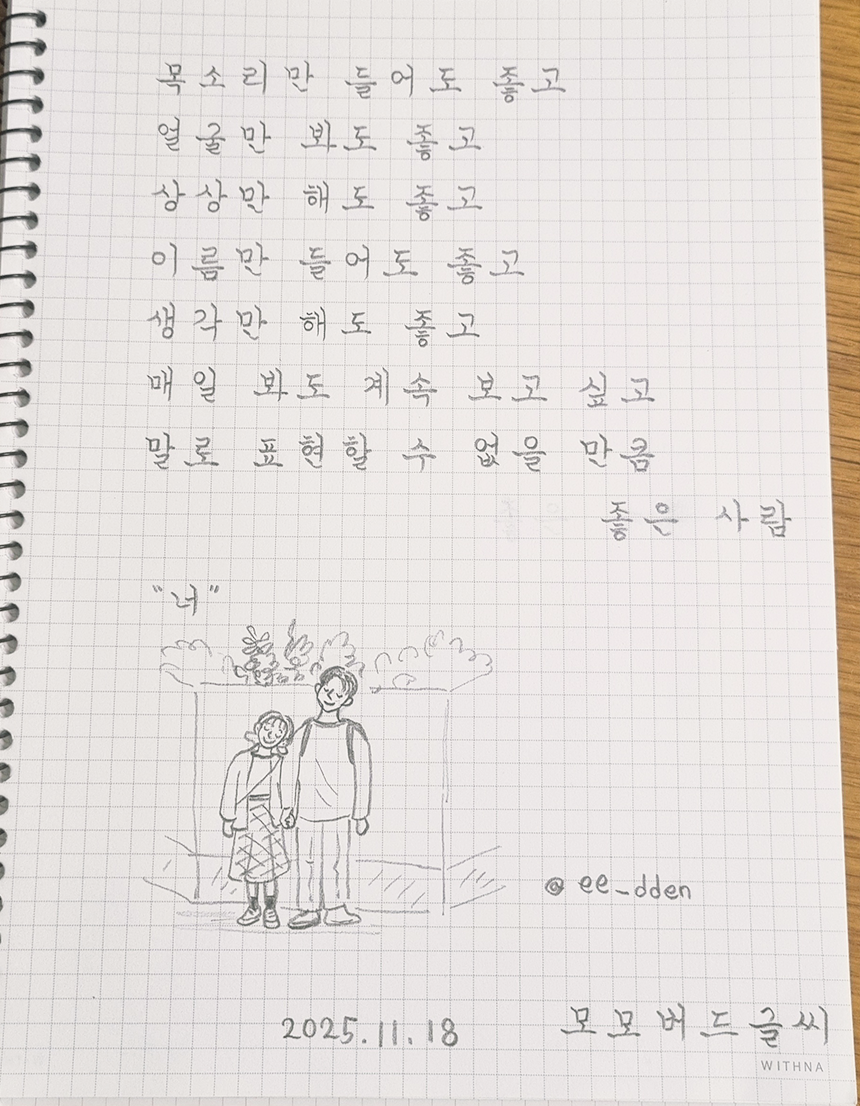 목소리만 들어도 좋고
얼굴만 봐도 좋고
상상만 해도 좋고
이름만 들어도 좋고
생각만 해도 좋고
매일 봐도 계속 보고 싶고
말로 표현할 수 없을 만큼
좋은 사람
"너"
@ ee_dden
2025.11.18
모모버드글씨
WITHNA